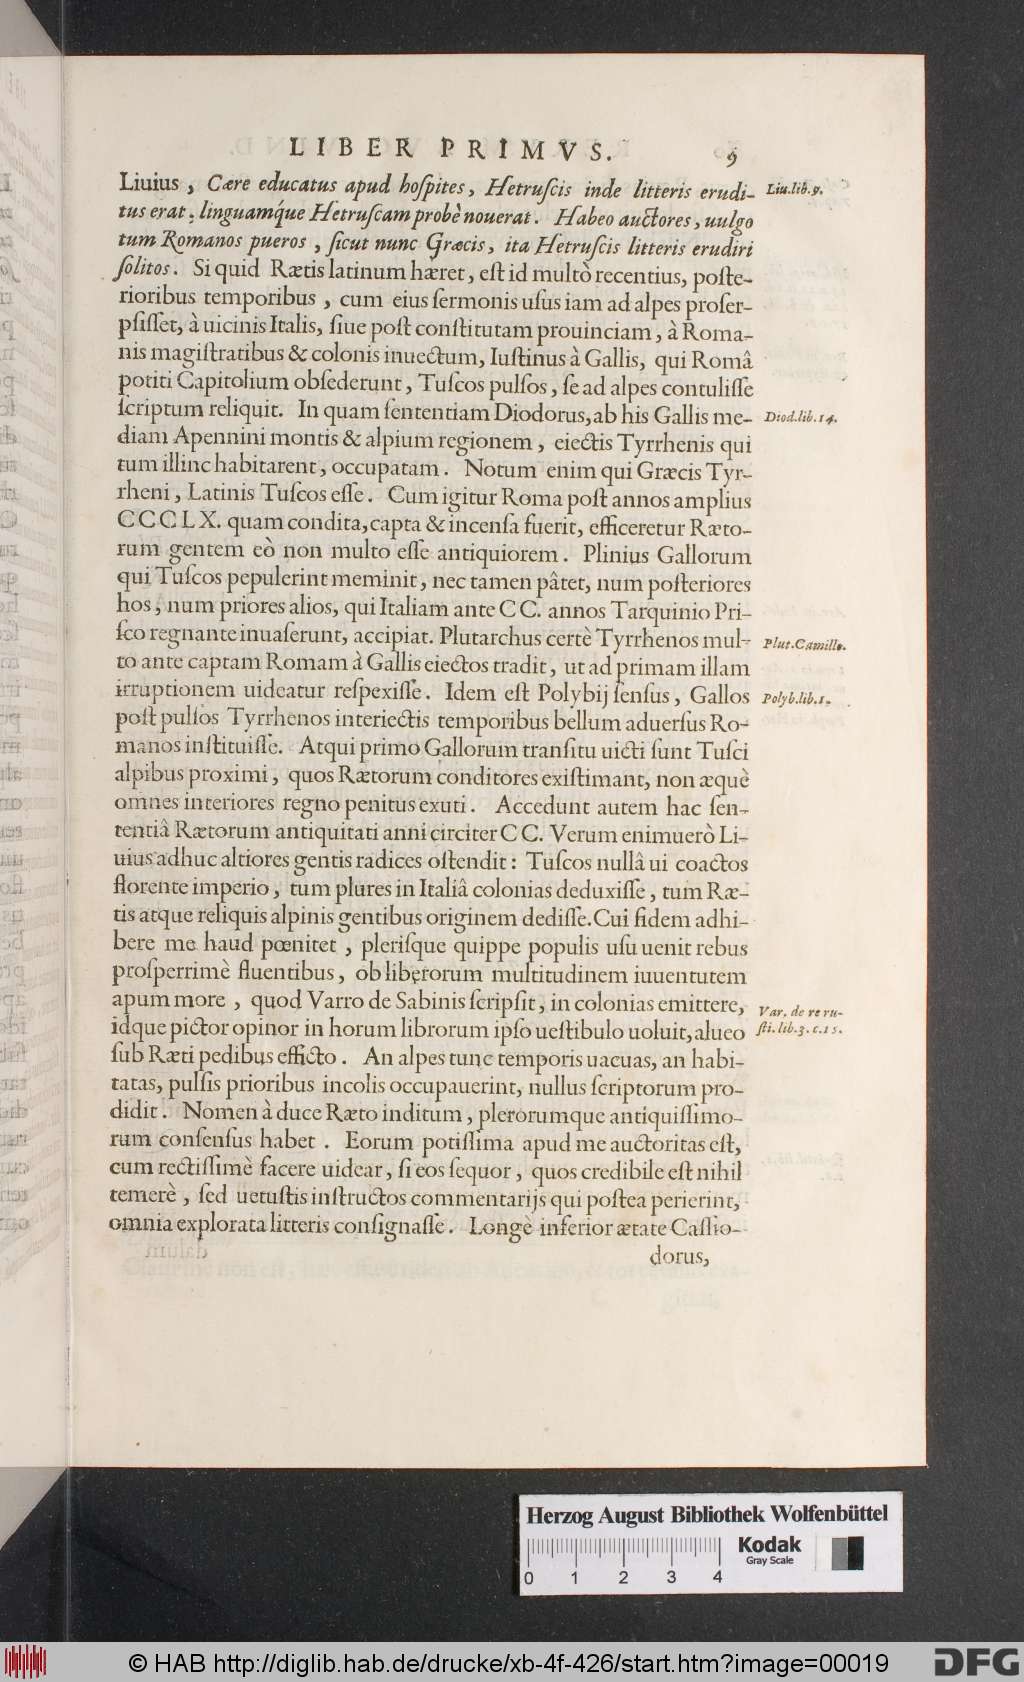 LIBER PRIMVS. 9
Liuius, Cære educatus apud hoſpites, Hetruſcis inde litteris erudi- Liu.lib.9.
tus erat: linguamq́ue Hetruſcam probè nouerat. Habeo auctores, uulgo
tum Romanos pueros, ſicut nunc Græcis, ita Hetruſcis litteris erudiri
ſolitos. Si quid Rætis latinum hæret, eſt id multò recentius, poſte-
rioribus temporibus, cum eius ſermonis uſus iam ad alpes proſer-
pſiſſet, à uicinis Italis, ſiue poſt conſtitutam prouinciam, à Roma-
nis magiſtratibus & colonis inuectum, Iuſtinus à Gallis, qui Româ
potiti Capitolium obſederunt, Tuſcos pulſos, ſe ad alpes contuliſſe
ſcriptum reliquit. In quam ſententiam Diodorus, ab his Gallis me- Diod.lib.14.
diam Apennini montis & alpium regionem, eiectis Tyrrhenis qui
tum illinc habitarent, occupatam. Notum enim qui Græcis Tyr-
rheni, Latinis Tuſcos eſſe. Cum igitur Roma poſt annos amplius
CCCLX. quam condita, capta & incenſa fuerit, efficeretur Ræto-
rum gentem eò non multo eſſe antiquiorem. Plinius Gallorum
qui Tuſcos pepulerint meminit, nec tamen pâtet, num poſteriores
hos, num priores alios, qui Italiam ante CC. annos Tarquinio Pri-
ſco regnante inuaſerunt, accipiat. Plutarchus certè Tyrrhenos mul- Plut.Camillo.
to ante captam Romam à Gallis eiectos tradit, ut ad primam illam
irruptionem uideatur reſpexiſſe. Idem eſt Polybij ſenſus, Gallos Polyb.lib.1.
poſt pulſos Tyrrhenos interiectis temporibus bellum aduerſus Ro-
manos inſtituiſſe. Atqui primo Gallorum tranſitu uicti ſunt Tuſci
alpibus proximi, quos Rætorum conditores exiſtimant, non æquè
omnes interiores regno penitus exuti. Accedunt autem hac ſen-
tentiâ Rætorum antiquitati anni circiter CC. Verum enimuerò Li-
uius adhuc altiores gentis radices oſtendit: Tuſcos nullâ ui coactos
florente imperio, tum plures in Italiâ colonias deduxiſſe, tum Ræ-
tis atque reliquis alpinis gentibus originem dediſſe. Cui fidem adhi-
bere me haud pœnitet, pleriſque quippe populis uſu uenit rebus
proſperrimè fluentibus, ob liberorum multitudinem iuuentutem
apum more, quod Varro de Sabinis ſcripſit, in colonias emittere, Var. de re ru-
idque pictor opinor in horum librorum ipſo ueſtibulo uoluit, alueo ſti.lib.3.c.15.
ſub Ræti pedibus efficto. An alpes tunc temporis uacuas, an habi-
tatas, pulſis prioribus incolis occupauerint, nullus ſcriptorum pro-
didit. Nomen à duce Ræto inditum, plerorumque antiquiſſimo-
rum conſenſus habet. Eorum potiſſima apud me auctoritas eſt,
cum rectiſſimè facere uidear, ſi eos ſequor, quos credibile eſt nihil
temerè, ſed uetuſtis inſtructos commentarijs qui poſtea perierint,
omnia explorata litteris conſignaſſe. Longè inferior ætate Caſſio-
dorus,
Herzog August Bibliothek Wolfenbüttel
Kodak
Gray Scale
0 1 2 3 4
© HAB http://diglib.hab.de/drucke/xb-4f-426/start.htm?image=00019
DFG